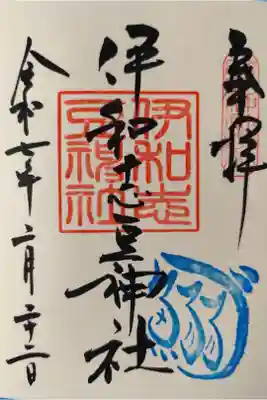 奉拝
伊和志豆神社
伊和志
豆神社
令和七年 二月二十二日